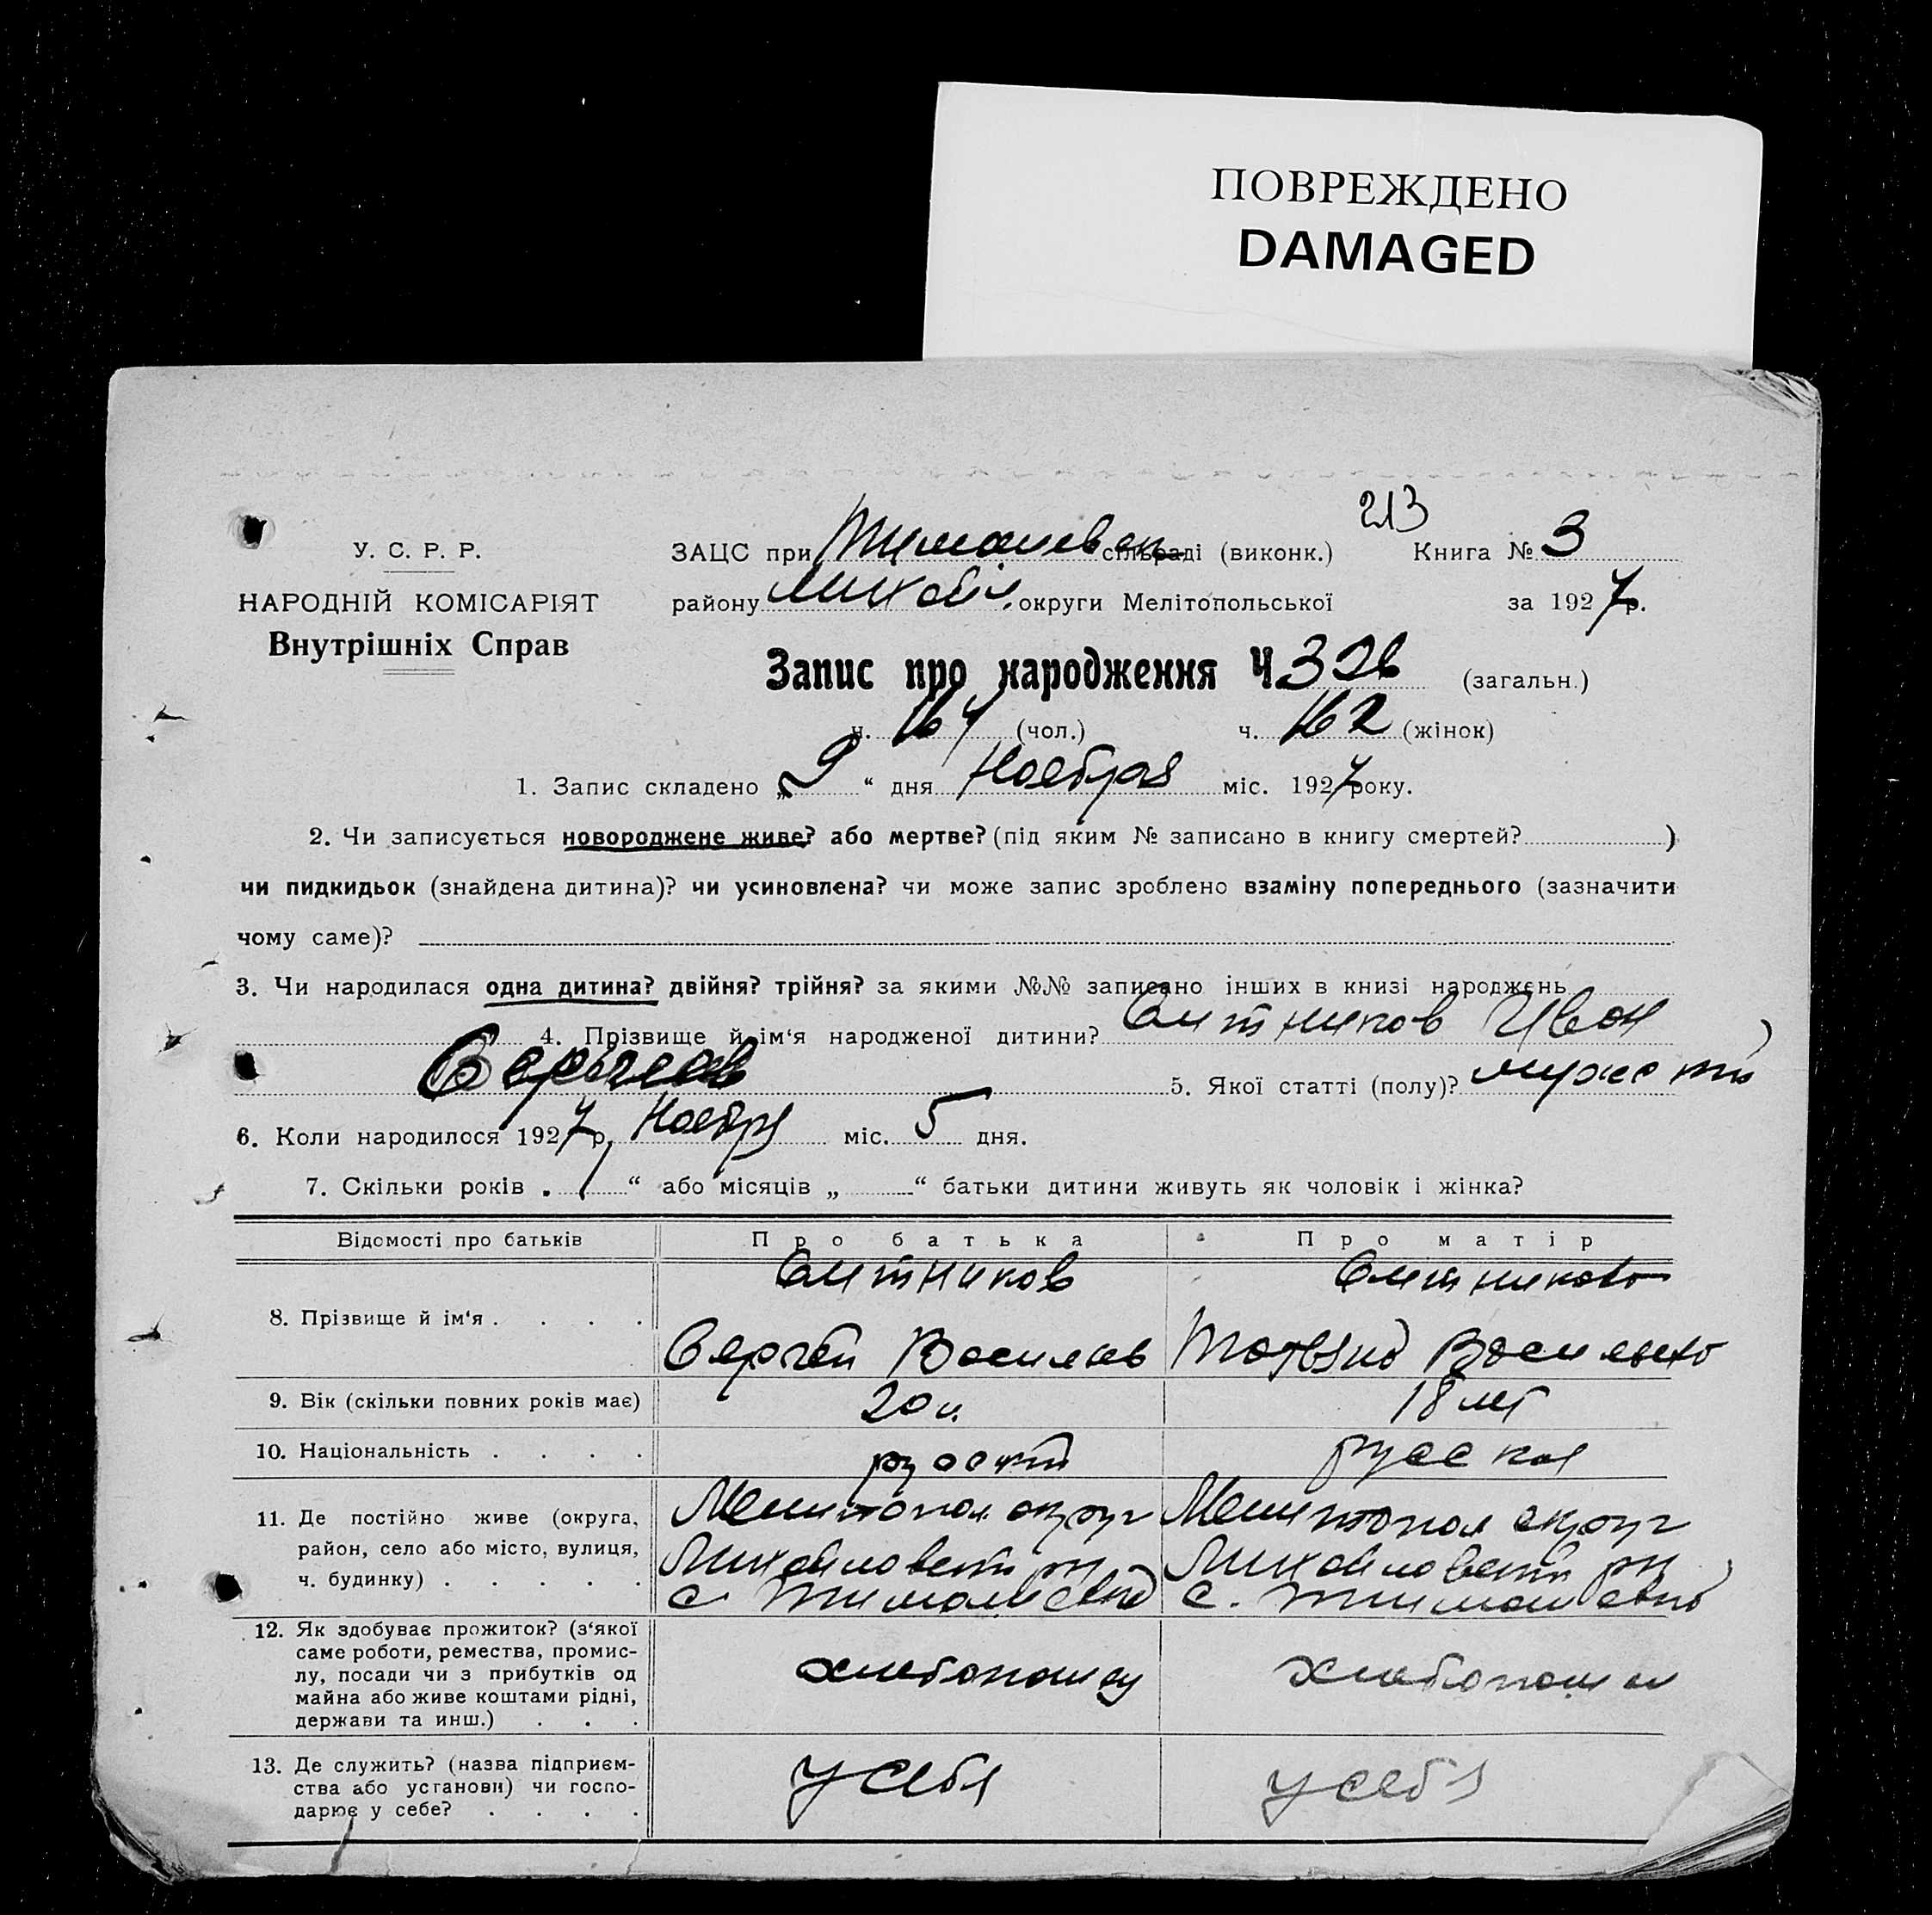 ПОВРЕЖДЕНО
DAMAGED
213
У. С. Р. Р.
НАРОДНІЙ КОМІСАРІЯТ
Внутрішніх Справ
ЗАЦС при Тимошевск сільраді (виконк.) Книга № 3
району Михайл. округи Мелітопольської за 1927 р.
Запис про народження Ч 326 (загальн.)
ч. 164 (чол.) ч. 162 (жінок)
1. Запис складено „9“ дня Ноября міс. 1927 року.
2. Чи записується новороджене живе? або мертве? (під яким № записано в книгу смертей? )
чи пидкидьок (знайдена дитина)? чи усиновлена? чи може запис зроблено взаміну попереднього (зазначити
чому саме)?
3. Чи народилася одна дитина? двійня? трійня? за якими №№ записано інших в книзі народжень
4. Прізвище й ім‘я народженої дитини? Ситников Иван
Сергеев 5. Якої статті (полу)? мужск
6. Коли народилося 1927 р. Ноябр міс. 5 дня.
7. Скільки років „1“ або місяців „ “ батьки дитини живуть як чоловік і жінка?
Відомості про батьків Про батька Про матір
8. Прізвище й ім‘я . . . . Ситников Ситникова
Сергей Василев
9. Вік (скільки повних років має) 20 л. 18 лет
10. Національність . . . . русский русская
11. Де постійно живе (округа, Мелитопол округ Мелитопол округ
район, село або місто, вулиця, Михайловский рн Михайловский рн
ч. будинку) . . . . . с. Тимошевка с. Тимошевка
12. Як здобуває прожиток? (з‘якої
саме роботи, ремества, промис-
лу, посади чи з прибутків од хлебопаш хлебопаш
майна або живе коштами рідні,
держави та инш.) . . .
13. Де служить? (назва підприєм-
ства або установи) чи госпо- у себя у себя
дарює у себе? . . . .